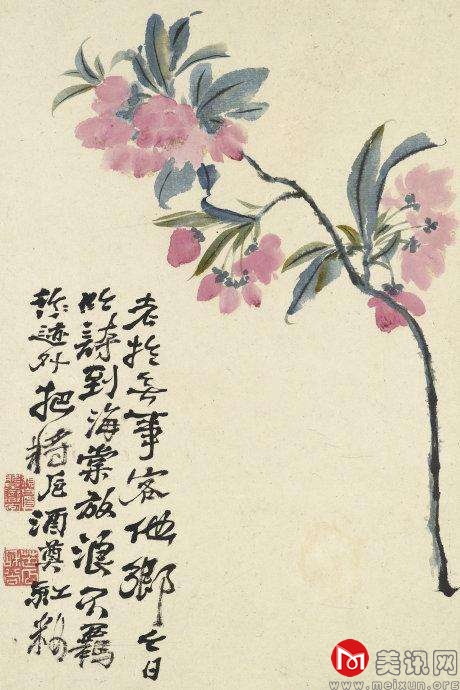 老於無事客他鄉今日
吟詩到海棠放浪不羈
形迹外把將卮酒奠紅粧
美讯网
www.meixun.org